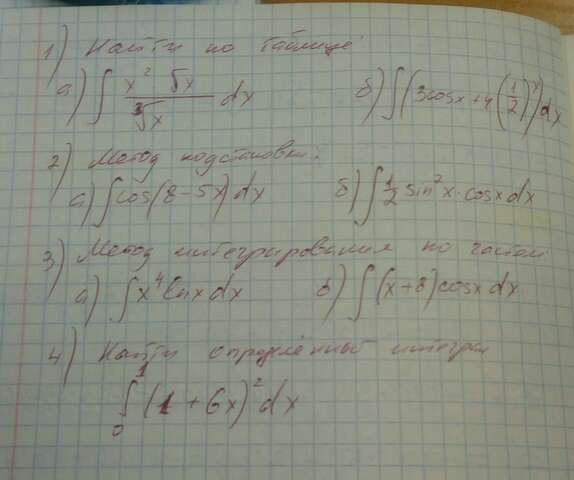 1) Найти по таблице
а) ∫ x² √x / ∛x dx б) ∫(3cosx+4(1/2)ˣ)dx
2) Метод подстановки.
а) ∫cos(8-5x)dx б) ∫1/2 sin²x·cosxdx
3) Метод интегрирования по частям
а) ∫x⁴lnxdx б) ∫(x+8)cosxdx
4) Найти определённый интеграл
∫₀¹(1+6x)²dx